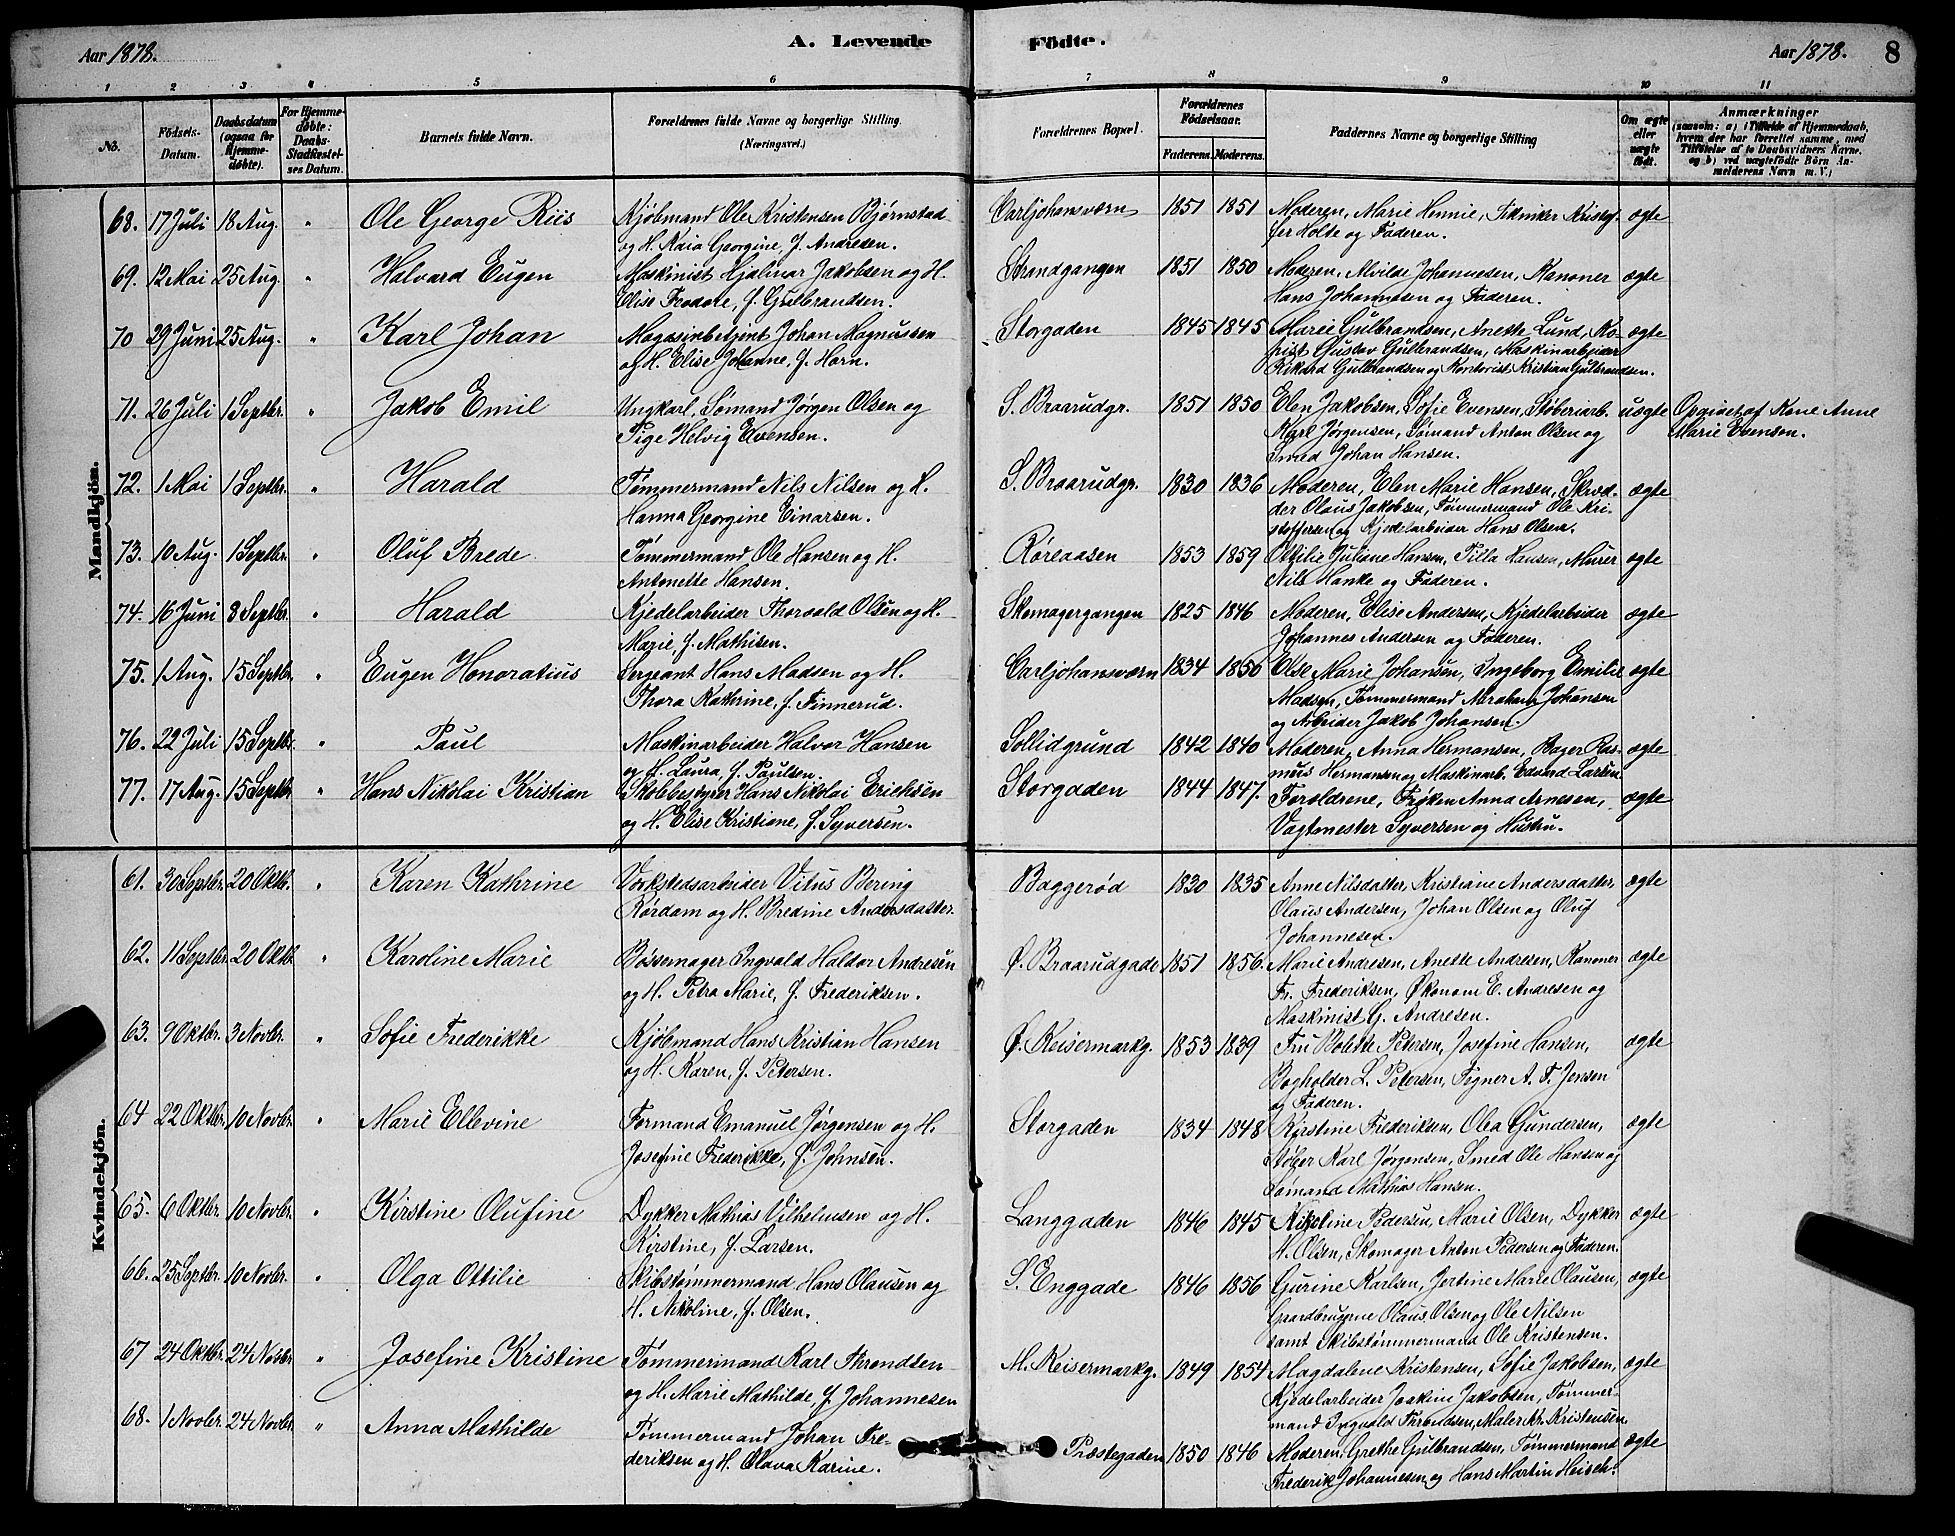 Aar 1878.
A. Levende
Födte.
Aar 1878.
8
1 2 3 4 5 6 7 8 9 10 11
No.
Födsels-Datum.
Daabsdatum (ogsaa for Hjemme-döbte).
For Hjemme-döbte: Daabs-Stadfæstel-ses Datum.
Barnets fulde Navn.
Forældrenes fulde Navne og borgerlige Stilling. (Næringsvei.)
Forældrenes Bopæl.
Forældrenes Födselsaar.
Faderens. Moderens.
Faddernes Navne og borgerlige Stilling
Om ægte eller uægte født.
Anmærkninger
(saasom: a) i Tilfælde af Hjemmedaab, hvem der har forrettet samme, med Tilföielse af to Daabsvidners Navne, og b) ved uægtefödte Börn An-melderens Navn m. V.)
Mandkjön.
68. 17 Juli 18 Aug. " Ole George Riis Kjöbmand Ole Kristensen Björnstad Carljohansværn 1851 1851 Moderen, Marie Hennie, Tekniker Kristof- ægte
og H. Kaia Georgine, f. Andresen. fer Holte og Faderen.
69. 12 Mai 25 Aug. " Halvard Eugen Maskinist Hjalmar Jakobsen og H. Strandgangen 1851 1850 Moderen, Alvilde Johannesen, Kanoner ægte
Elise Teodore, f. Gulbrandsen. Hans Johannesen og Faderen.
70 29 Juni 25 Aug. " Karl Johan Magasinbetjent Johan Magnussen Storgaden 1845 1845 Marie Gulbrandsen, Anette Lund, Ko- ægte
og H. Elise Johanne, f. Horn. pist Gustav Gulbrandsen, Maskinarbeider
Rikard Gulbrandsen og Kontorist Kristian Gulbrandsen.
71. 26 Juli 1 Septbr. " Jakob Emil Ungkarl, Sömand Jörgen Olsen og S. Braarudgr. 1851 1850 Elen Jakobsen, Sofie Evensen, Stöberiarb. uægte Opgivet af Kone Anne
Pige Helvig Evensen. Karl Jörgensen, Sömand Anton Olsen og Marie Evensen.
Smed Johan Hansen.
72. 1 Mai 1 Septbr. " Harald Tömmermand Nils Nilsen og H. S. Braarudgr. 1830 1836 Moderen, Elen Marie Hansen, Skræd- ægte
Hanna Georgine Einarsen. der Olaus Jakobsen, Tömmermand Ole Kri-
stoffersen og Kjedelarbeider Hans Olsen.
73. 10 Aug. 1 Septbr. " Oluf Brede Tömmermand Ole Hansen og H. Röreaasen 1853 1859 Ottilie Juliane Hansen, Tilla Hansen, Murer ægte
Antonette Hansen. Nils Hanke og Faderen.
74. 16 Juni 8 Septbr. " Harald Kjedelarbeider Thorvald Olsen og H. Skomagergangen 1825 1846 Moderen, Elise Andersen, Kjedelarbeider ægte
Marie, f. Mathisen. Johannes Andersen og Faderen.
75. 1 Aug. 15 Septbr. " Eugen Honoratius Sergeant Hans Madsen og H. Carljohansværn 1834 1850 Else Marie Johansen, Ingeborg Emilie ægte
Thora Kathrine, f. Finnerud. Madsen, Tömmermand Abraham Johansen
og Arbeider Jakob Johansen.
76. 22 Juli 15 Septbr. " Paul Maskinarbeider Halvor Hansen Sollidgrund 1842 1840 Moderen, Anna Hermansen, Bager Ras- ægte
og H. Laura, f. Paulsen. mus Hermansen og Maskinarb. Edvard Larsen.
77. 17 Aug. 15 Septbr " Hans Nikolai Kristian Skibbestyrer Hans Nikolai Erichsen Storgaden 1844 1847. Foroldrene, Fröken Anna Arnesen, ægte
og H. Elise Kristiane, f. Syversen. Vagtmester Syversen og Hustru.
Kvindekjön.
61. 30 Septbr. 20 Oktbr. " Karen Kathrine Værkstedsarbeider Vitus Bering Baggeröd 1830 1835 Anne Nilsdatter, Kristiane Andersdatter, ægte
Rördam og H. Bredine Andersdatter. Olaus Andersen, Johan Olsen og Oluf
Johannesen.
62. 11 Septbr. 20 Oktbr " Karoline Marie Bössemager Ingvald Haldor Andresen Ø. Braarudgade 1851 1856. Marie Andresen, Anette Andresen, Kanoner ægte
og H. Petra Marie, f. Frederiksen. Fr. Frederiksen, Økonom E. Andresen og
Maskinist G. Andresen.
63. 9 Oktbr. 3 Novbr. " Sofie Frederikke Kjöbmand Hans Kristian Hansen Ø. Keisermarkg. 1853 1839 Fru Bolette Petersen, Josefine Hansen, ægte
og H. Karen, f. Petersen. Bogholder L. Petersen, Tegner A. T. Jensen
og Faderen.
64 22 Oktbr. 10 Novbr. " Marie Ellevine Formand Emanuel Jörgensen og H. Storgaden 1834 1848 Kirstine Frederiksen, Olea Gundersen, ægte
Josefine Frederikke, f. Johnsen. Stöber Karl Jörgensen, Smed Ole Hansen og
Sömand Mathias Hansen.
65. 6 Oktbr. 10 Novbr. " Kirstine Olufine Dykker Mathias Vilhelmsen og H. Langgaden 1846 1845 Nikoline Pedersen, Marie Olsen, Dykker ægte
Kirstine, f. Larsen. H. Olsen, Skomager Anton Pedersen og Faderen.
66. 25 Septbr. 10 Novbr. " Olga Ottilie Skibstömmermand Hans Olausen og S. Enggade 1846 1856 Gurine Karlsen, Jertine Marie Olausen, ægte
H. Nikoline, f. Olsen. Gaardbrugerne Olaus Olsen og Ole Nilsen
samt Skibstömmermand Ole Kristensen.
67 24 Oktbr. 24 Novbr " Josefine Kristine Tömmermand Karl Throndsen M. Keisermarkg. 1849 1854 Magdalene Kristensen, Sofie Jakobsen, ægte
og H. Marie Mathilde, f. Johannesen Kjedelarbeider Joakim Jakobsen, Tömmer-
mand Ingvald Throndsen, Maler Kr. Kristensen.
68. 1 Novbr. 24 Novbr. " Anna Mathilde Tömmermand Johan Fre- Præstegaden 1850 1846 Moderen, Grethe Gulbrandsen, Tömmermand ægte
deriksen og H. Olava Karine. Frederik Johannesen og Hans Martin Heisch.